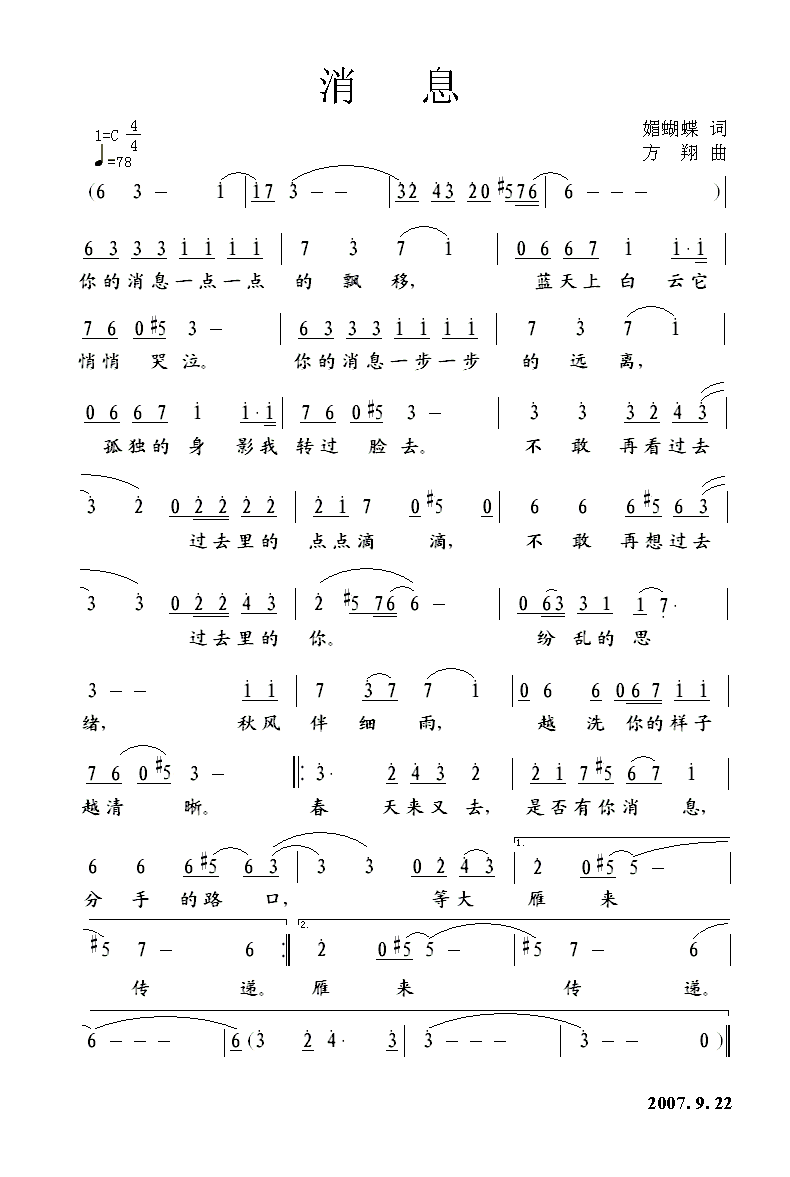 消 息
1=C 4/4
♩=78
媚蝴蝶 词
方 翔 曲
(6 3 — 1̇ | 1̇7 3̇ — — | 3̇2̇ 4̇3̇ 2̇0 #576 | 6 — — — ) |
63 33 1̇1̇ 1̇1̇ | 7 3̇ 7 1̇ | 06 67 1̇ 1̇·1̇ |
你的消息一点一点 的 飘 移, 蓝天上 白 云它
76 0#5 3 — | 63 33 1̇1̇ 1̇1̇ | 7 3̇ 7 1̇ |
悄悄 哭泣。 你的消息一步一步 的 远 离,
06 67 1̇ 1̇·1̇ | 76 0#5 3 — | 3̇ 3̇ 3̇2̇ 4̇3̇ |
孤独的 身 影我 转过 脸去。 不 敢 再看过去
3̇ 2̇ 02̇2̇ 2̇2̇ | 2̇1̇ 7 0#5 0 | 6 6 6#5 63̇ |
过去里的 点点滴 滴, 不 敢 再想过去
3̇ 3̇ 02̇2̇ 4̇3̇ | 2̇ #5 76 6 — | 063 31 17̣· |
过去里的 你。 纷 乱的 思
3 — — 1̇1̇ | 7 3̇7 7 1̇ | 06 6 067 1̇1̇ |
绪, 秋风 伴 细 雨, 越 洗 你的样子
76 0#5 3 — ‖: 3̇· 2̇ 4̇3̇ 2̇ | 2̇1̇ 7#5 67 1̇ |
越清 晰。 春 天来又去, 是否有你消 息,
6 6 6#5 63̇ | 3̇ 3̇ 02̇ 4̇3̇ | 1. 2̇ 0#5 5 — |
分 手 的路 口, 等大 雁 来
#5 7 — 6 :‖ 2. 2̇ 0#5 5 — | #5 7 — 6 |
传 递。 雁 来 传 递。
6 — — — | 6 (3̇ 2̇ 4̇· 3̇ | 3̇ — — — | 3̇ — — 0 ) ‖
2007.9.22